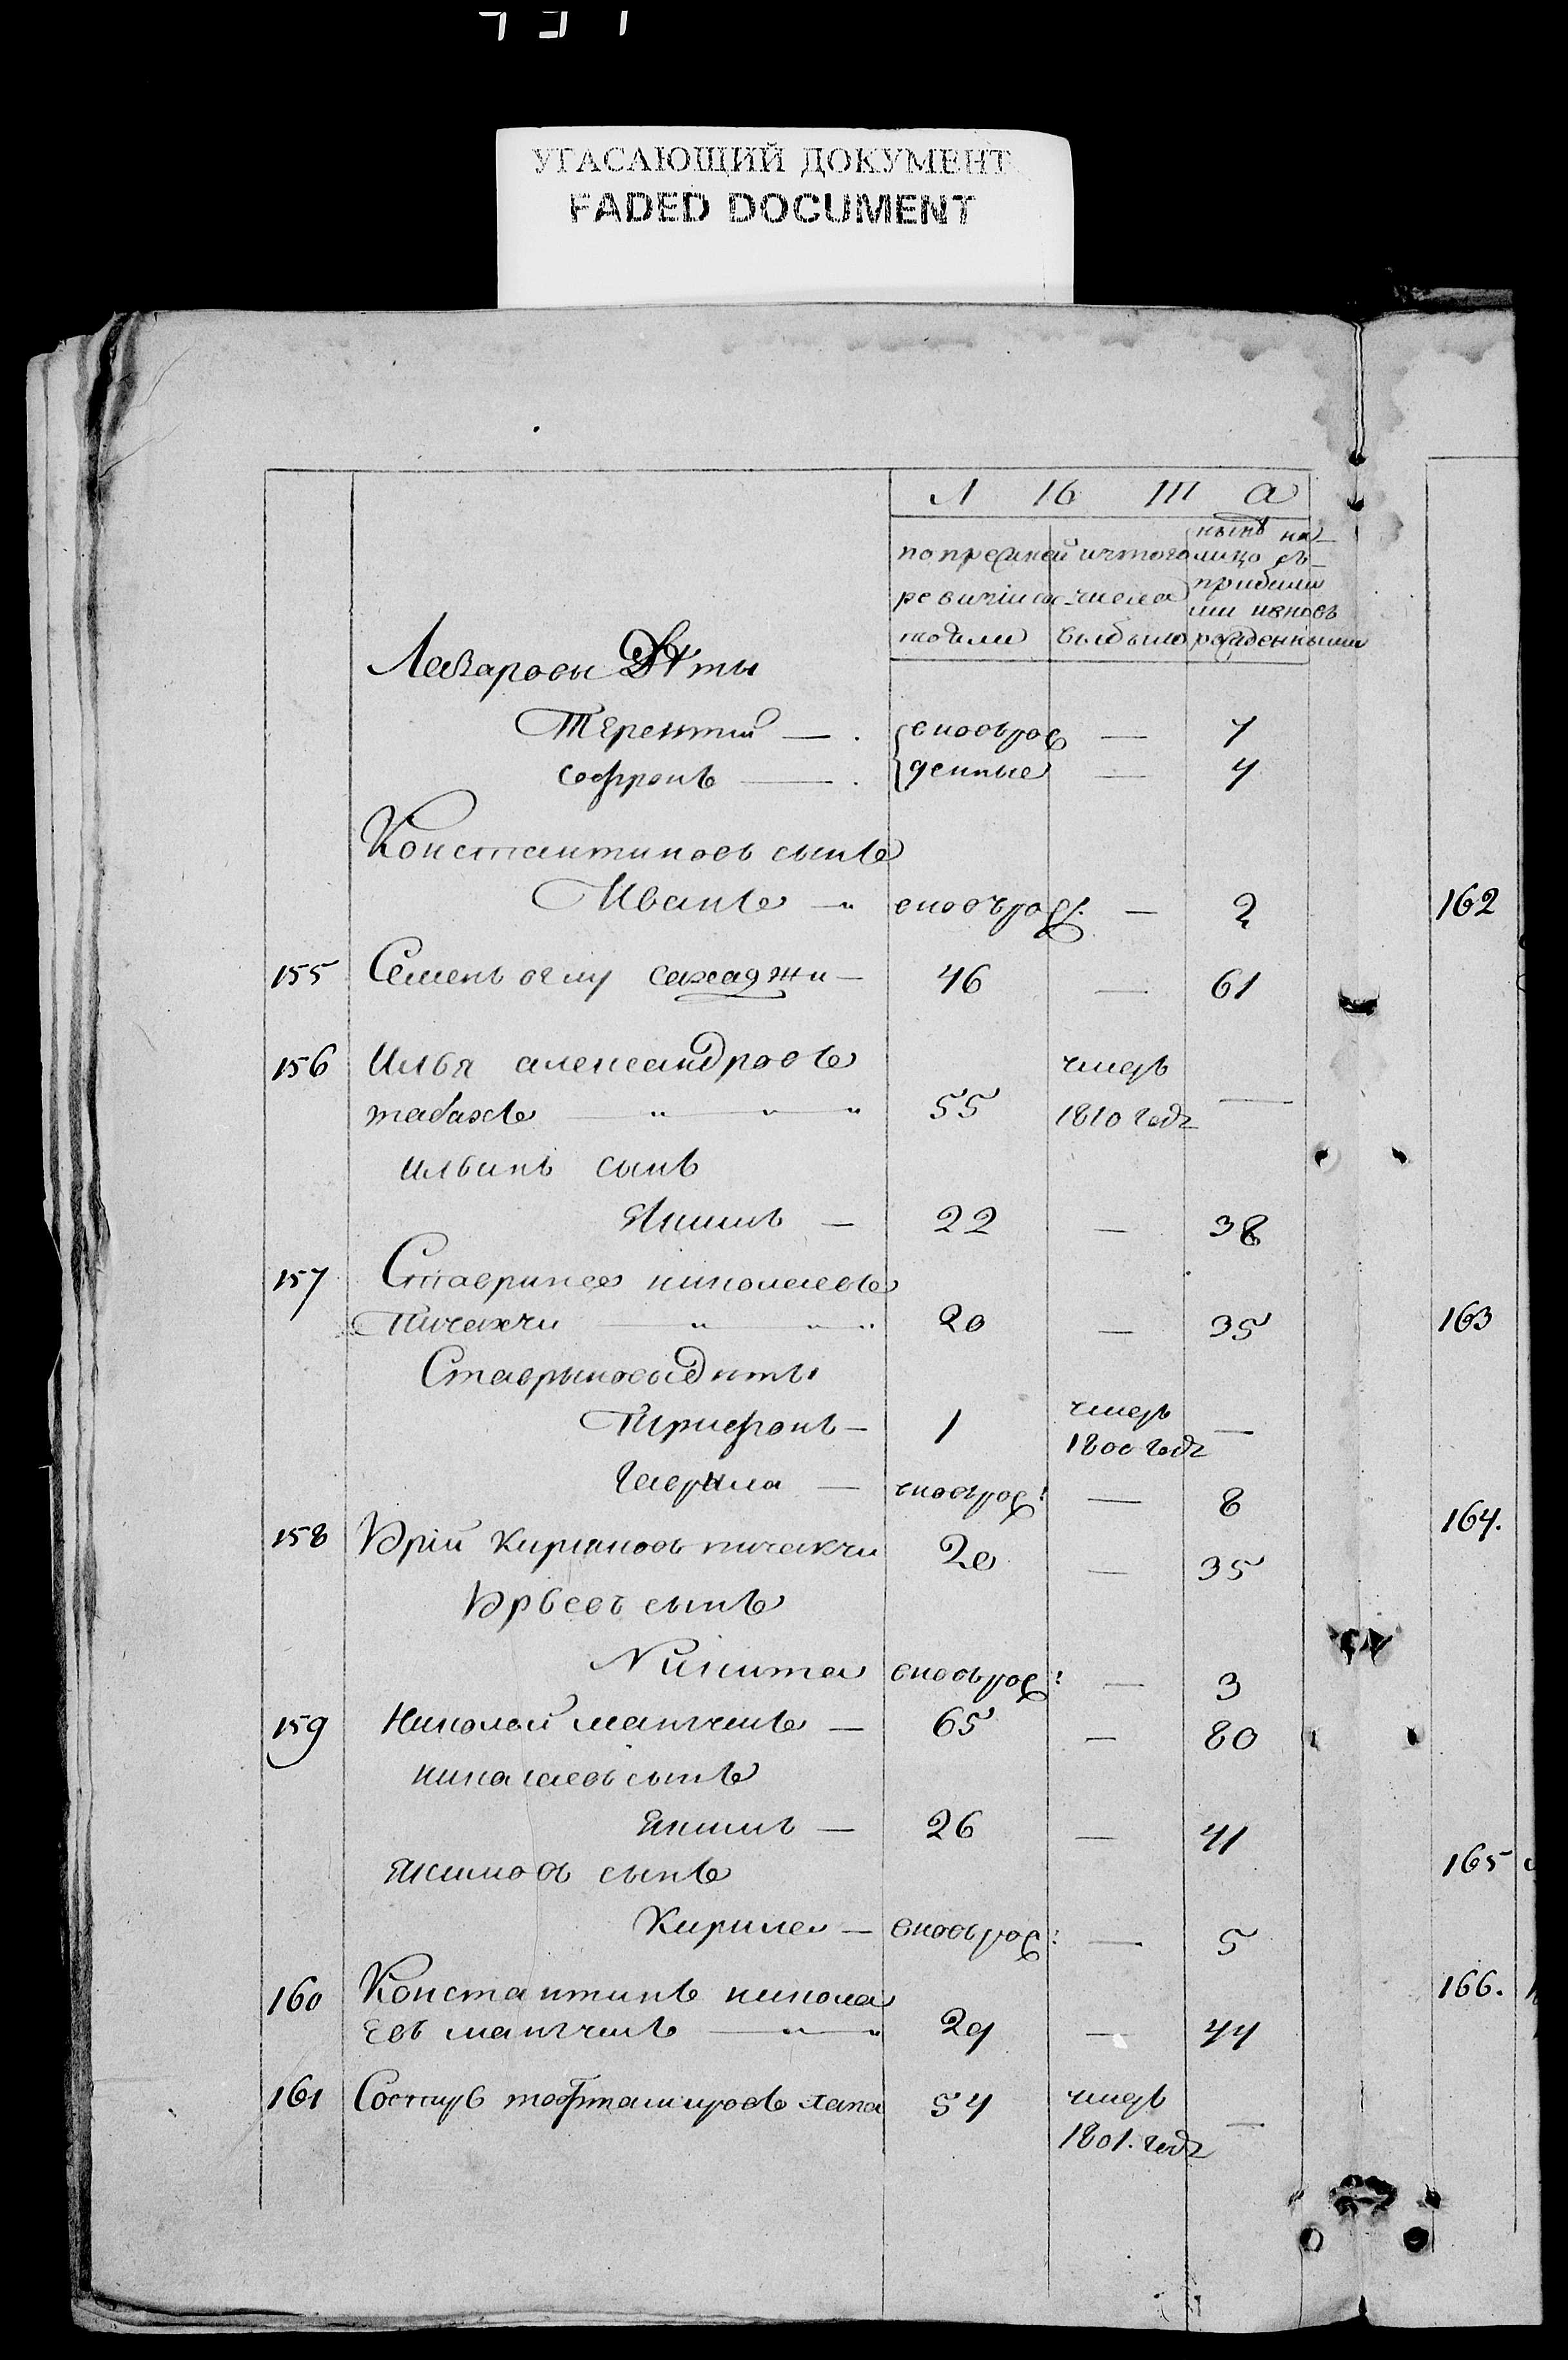 УГАСАЮЩИЙ ДОКУМЕНТ
FADED DOCUMENT
Лѣта
по прежней ревизіи состояли
изтого числа выбыло
нынѣ на лицо съ прибылыми и вновь рожденными
Лазаровы Дѣти
Терентий — . вновьрож — 7
Софронъ — . денные — 4
Константиновъ сынъ
Иванъ — вновьрож: — 2
155 Семенъ оглу сахаджи — 46 — 61
156 Илья александровъ
табахъ 55 умеръ 1810 года —
ильинъ сынъ
Якимъ — 22 — 38
157 Ставрине николаевъ
Пичакчи 20 — 35
Ставриновы дѣти
Трифонъ — 1 умеръ 1800 года —
Гаврила — вновьрож: — 8
158 Юрій Киріяковъ пичакчи 20 — 35
Юрьевъ сынъ
Никита вновьрож: — 3
159 Николай мангушъ — 65 — 80
николаевъ сынъ
Якимъ — 26 — 41
Якимовъ сынъ
Кирила — вновьрож: — 5
160 Константинъ никола
евъ мангушъ 29 — 44
161 54 умеръ 1801. года —
162
163
164.
165
166.